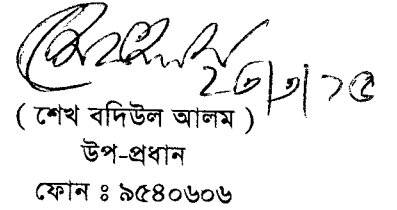 ২৩/৩/১৫
( শেখ বদিউল আলম )
উপ-প্রধান
ফোন ঃ ৯৫৪০৬০৬